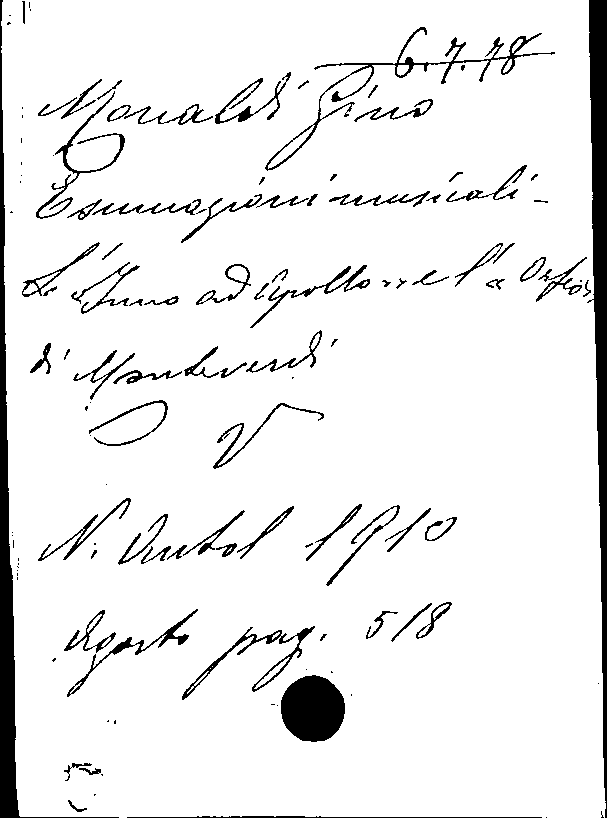 6.7.78
Monaldi Gino
Esumazioni musicali -
L'"Inno ad Apollo" e l'"Orfeo"
di Monteverdi
V
N. Antol 1910
Agosto pag. 518